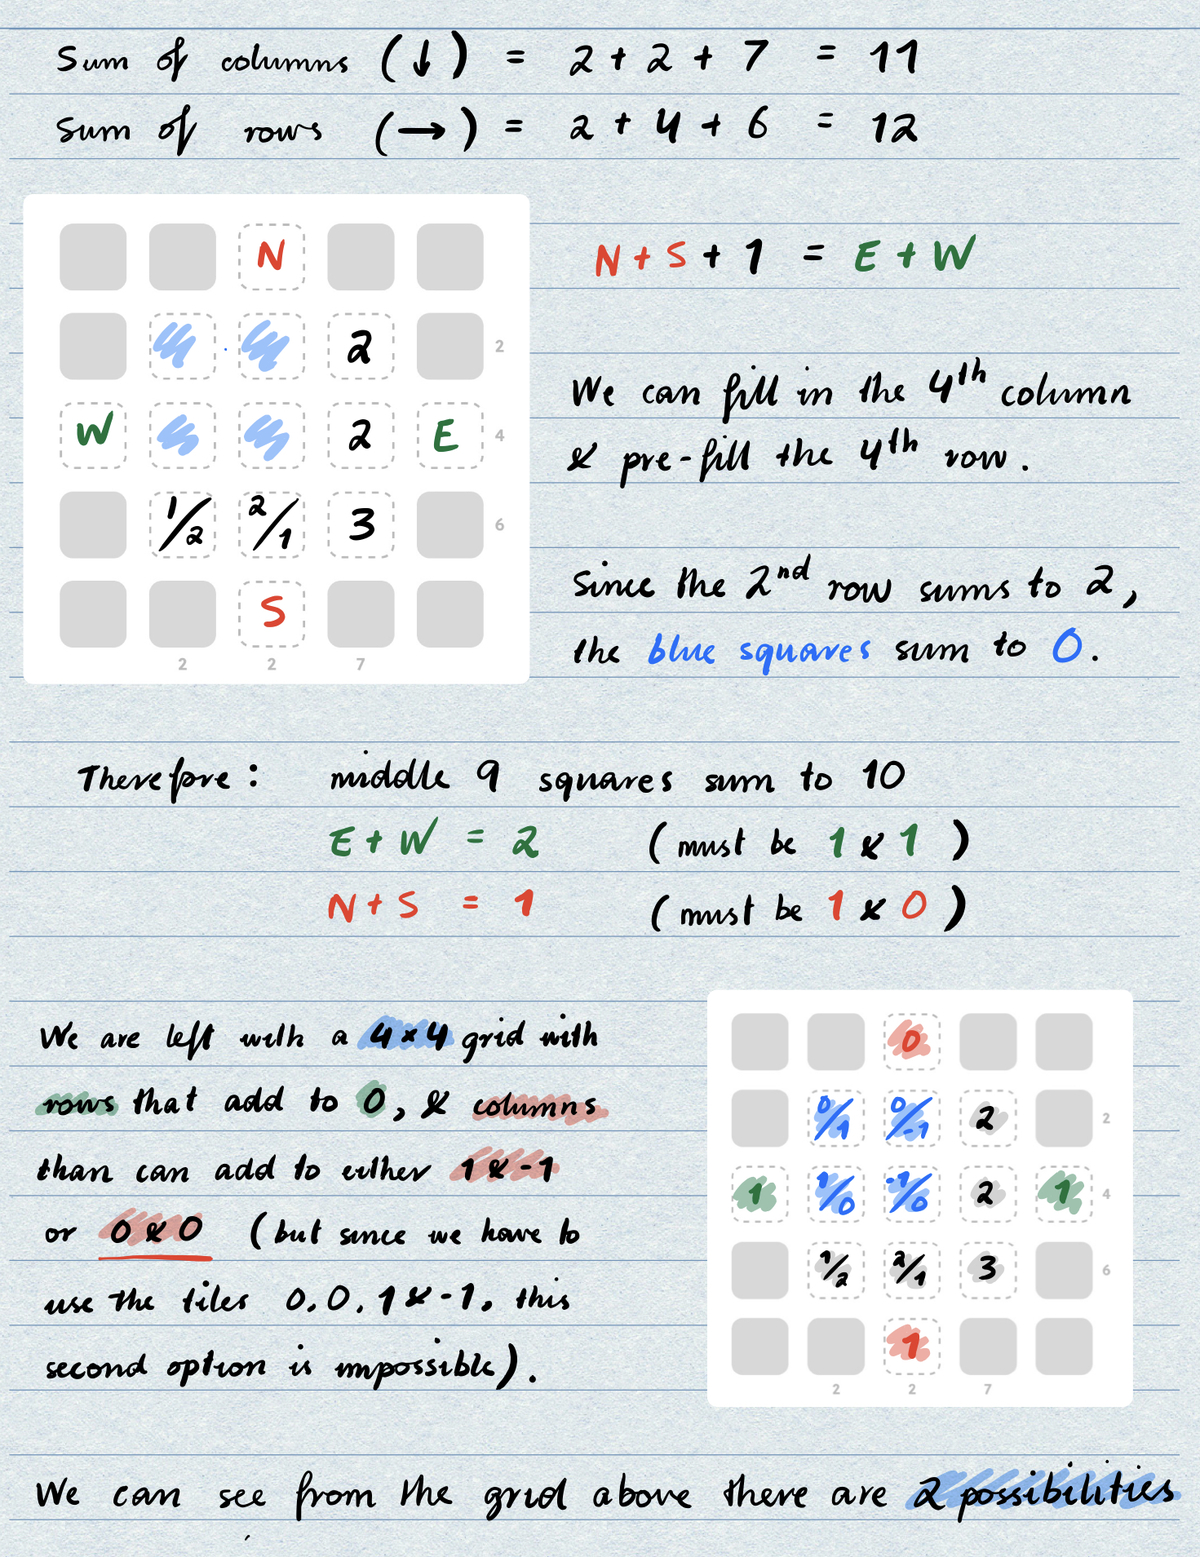 Sum of columns (↓) = 2 + 2 + 7 = 11
Sum of rows (→) = 2 + 4 + 6 = 12
N
2 2
W 2 E 4
1/2 2/1 3 6
S
2 2 7
N + S + 1 = E + W
We can fill in the 4th column
& pre-fill the 4th row.
Since the 2nd row sums to 2,
the blue squares sum to 0.
Therefore: middle 9 squares sum to 10
E + W = 2 (must be 1 & 1)
N + S = 1 (must be 1 & 0)
We are left with a 4×4 grid with
rows that add to 0, & columns
than can add to either 1 & -1
or 0 & 0 (but since we have to
use the tiles 0, 0, 1 & -1, this
second option is impossible).
0
0/1 0/-1 2 2
1 1/0 -1/0 2 1 4
1/2 2/1 3 6
1
2 2 7
We can see from the grid above there are 2 possibilities